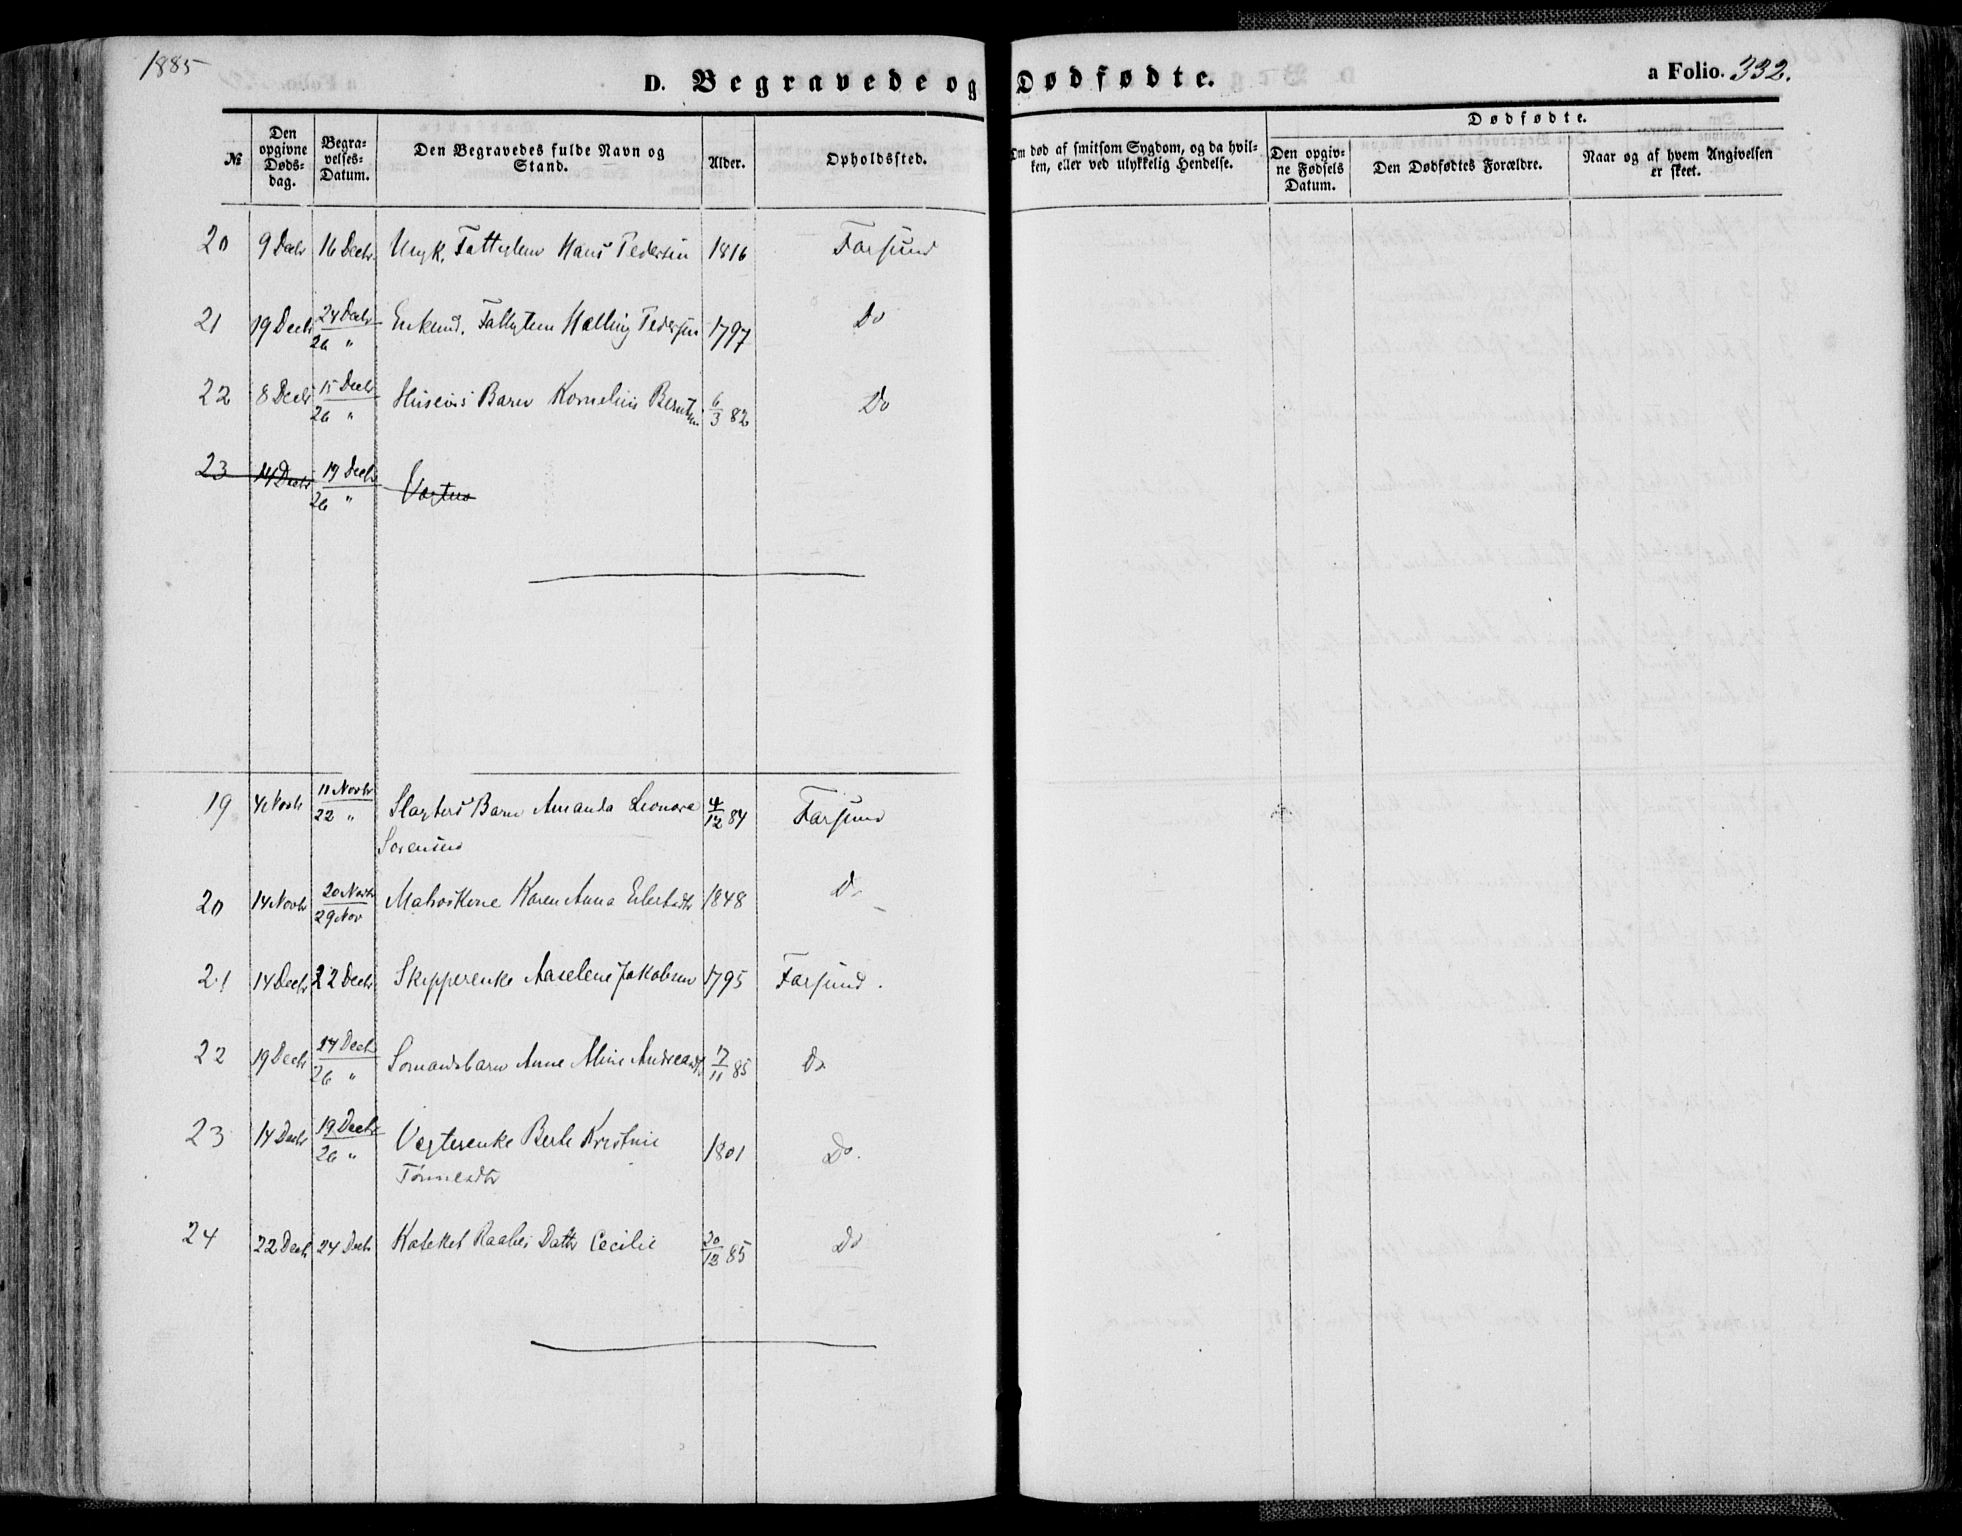 1885
D. Begravede og Dødfødte.
a Folio. 332.
№
Den opgivne Døds-dag.
Begra-velses-Datum.
Den Begravedes fulde Navn og Stand.
Alder.
Opholdssted.
Om død af smitsom Sygdom, og da hvil-ken, eller ved ulykkelig Hendelse.
Dødfødte.
Den opgiv-ne Fødsels Datum.
Den Dødfødtes Forældre.
Naar og af hvem Angivelsen er skeet.
20 9 Decbr 16 Decbr. Ungk. Fattiglem Hans Pedersen 1816 Farsund
21 19 Decbr 24 Decbr 26 " Enkemd. Fattiglem Pedersen 1797 Do
22 8 Decbr 15 Decbr 26 " Barn Kornelius 6/3 82 Do
23 14 Decbr 19 Decbr 26 "
19 4 Novbr 11 Novbr 22 " Slagters Barn Amanda Leonore 4/12 84 Farsund
Sørensen
20 14 Novbr 20 Novbr 29 Nov Matroskone Karen Anna 1848 Do
21 14 Decbr 22 Decbr Skipperenke Aaselene Jakobsen 1795 Farsund.
22 19 Decbr 24 Decbr 26 " Sømandsbarn Anne Aline Andreasdtr 17/11 85 Do
23 14 Decbr 19 Decbr 26 " Vegterenke Berte Kristine 1801 Do.
Tønnesdtr
24 22 Decbr 24 Decbr Kateket Raabes Dattr Cecilie 20/12 85 Do